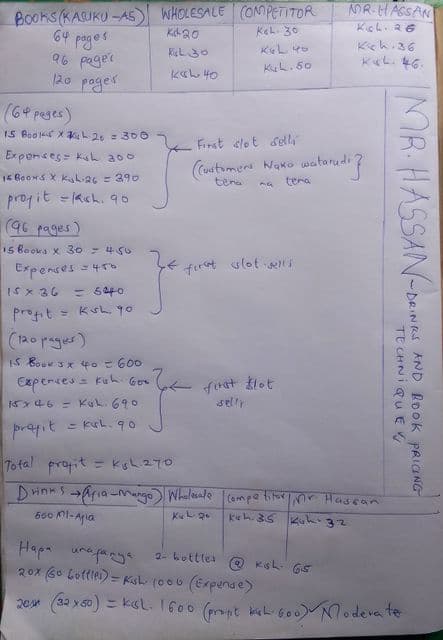 BOOKS (KASUKU - A5) WHOLESALE COMPETITOR MR. HASSAN
64 pages Ksh 20 Ksh. 30 Ksh. 26
96 pages Ksh. 30 Ksh. 40 Ksh. 36
120 pages Ksh 40 Ksh. 50 Ksh. 46.
(64 pages)
15 Books x Ksh 20 = 300
Expenses = Ksh 300
15 Books x Ksh. 26 = 390
profit = Ksh. 90
First slot sells
(Customers wako watarudi
tena na tena}
(96 pages)
15 Books x 30 = 450
Expenses = 450
15 x 36 = 540
profit = Ksh 90
first slot sells
(120 pages)
15 Books x 40 = 600
Expenses = Ksh. 600
15 x 46 = Ksh. 690
profit = Ksh. 90
first slot
sells
Total profit = Ksh 270
MR. HASSAN - DRINKS AND BOOK PRICING
TECHNIQUE
Drinks → (Afia - Mango) Wholesale Competitor Mr Hassan
500 Ml - Afia Ksh 20 Ksh. 35 Ksh. 32
Hapa unafanya 2 - bottles @ Ksh. 65
20 x (50 bottles) = Ksh 1000 (Expense)
(32 x 50) = Ksh. 1600 (profit Ksh 600) Moderate